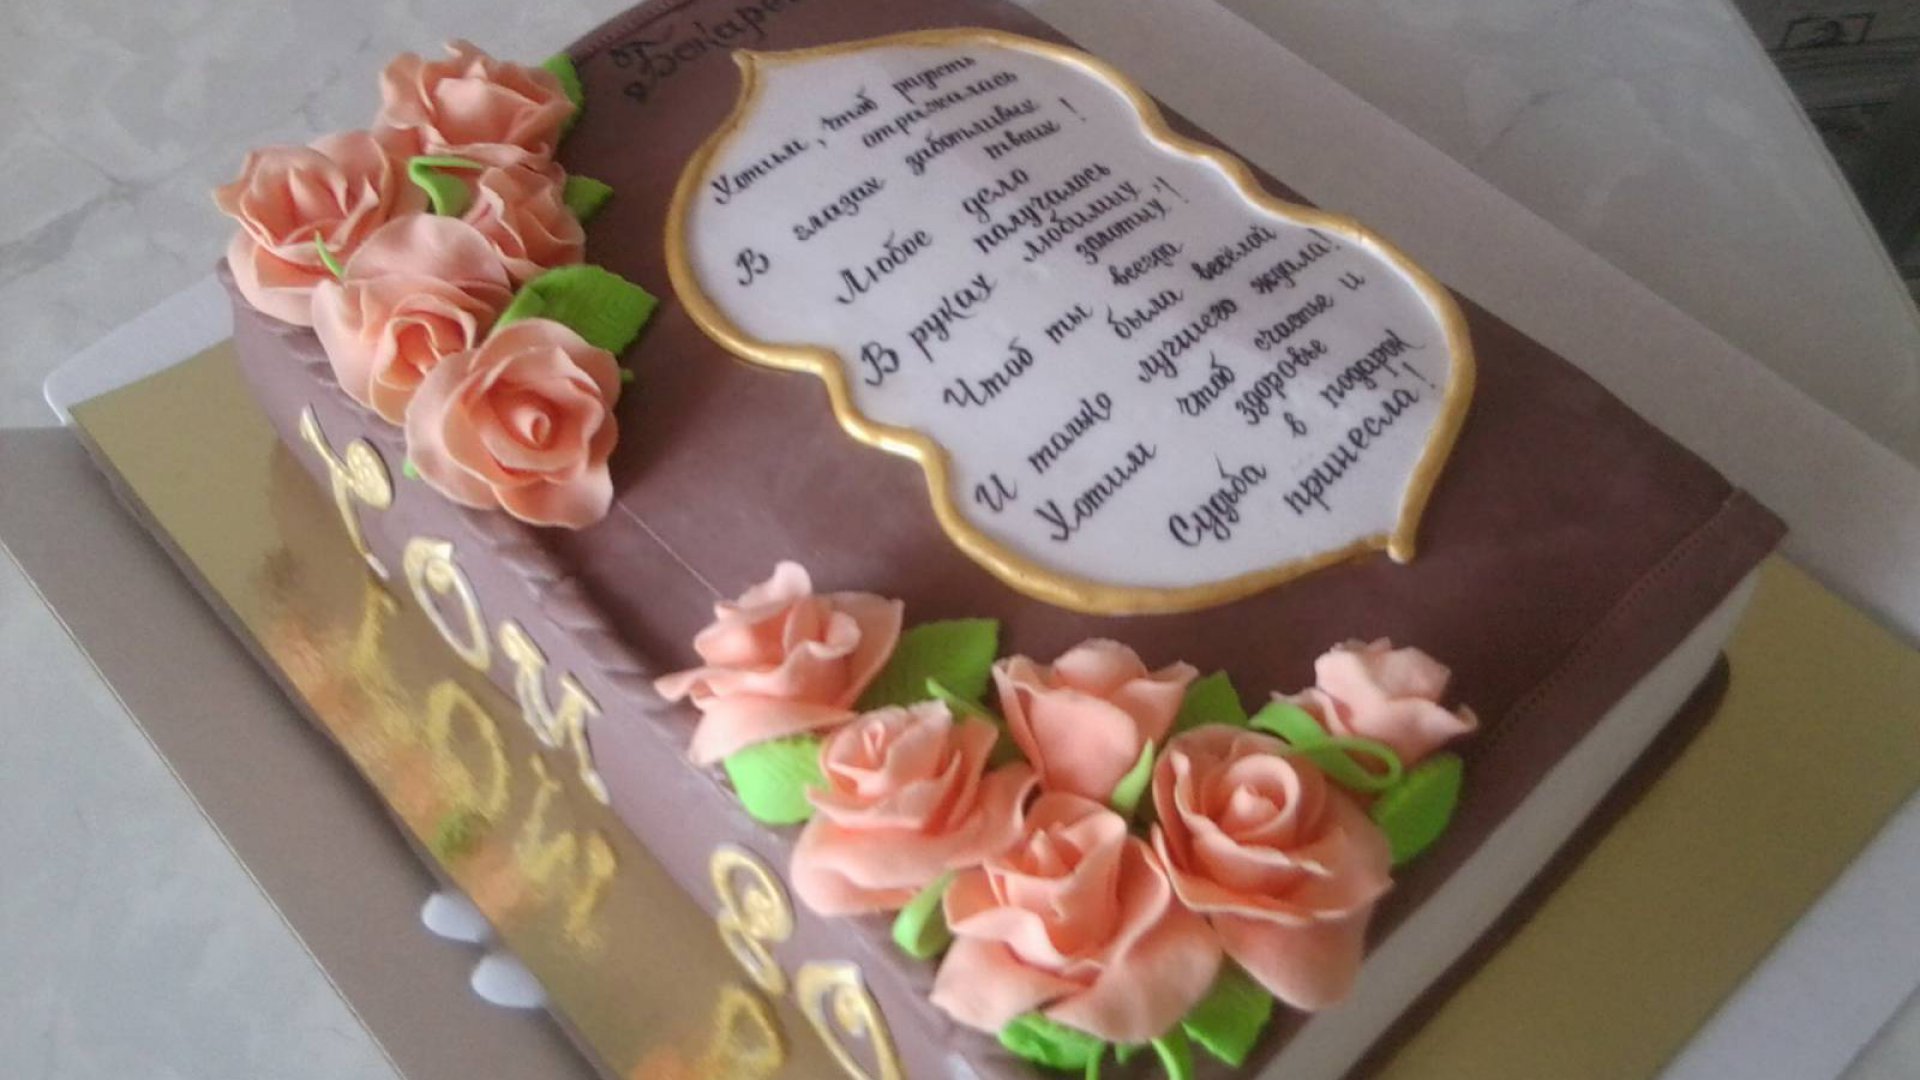 Хотим, чтоб радость
отражалась
В глазах заботливых
твоих!
Любое дело
получалось
В руках любимых,
золотых!
Чтоб ты всегда
была весёлой
И только лучшего ждала!
Хотим чтоб счастье и
здоровье
Судьба в подарок
принесла!